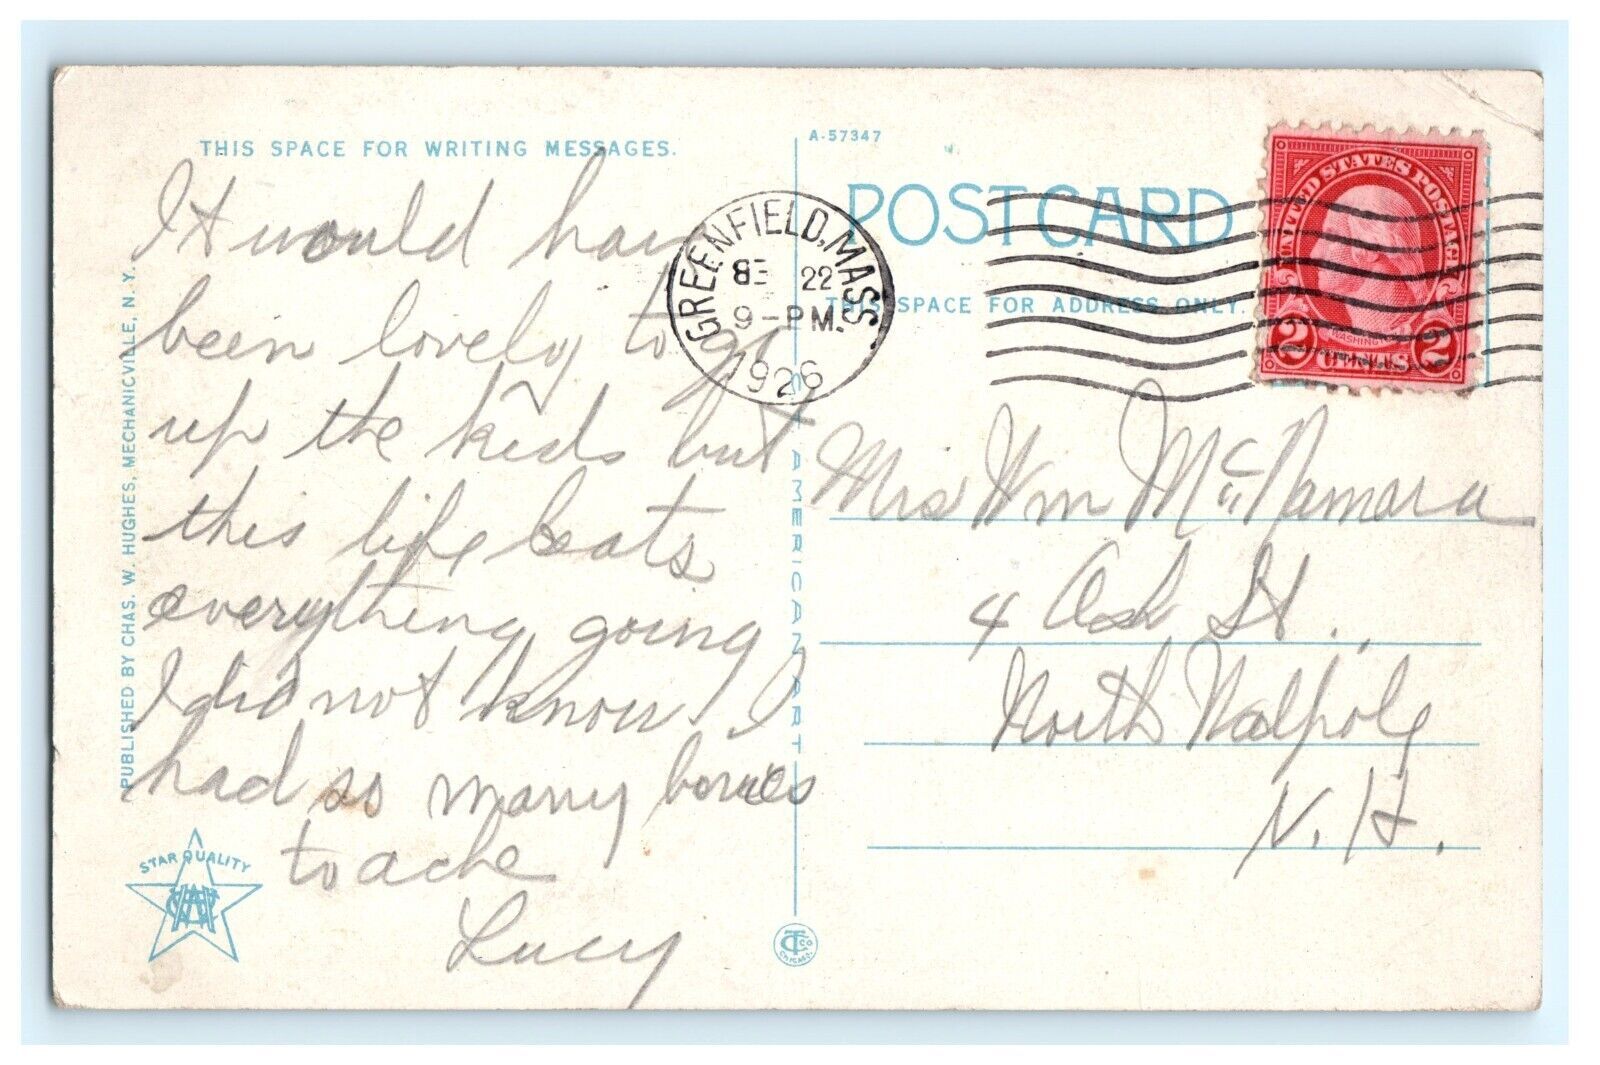 THIS SPACE FOR WRITING MESSAGES.
It would have
been lovely to go
up the kids but
this life beats
everything going
I did not know I
had so many bones
to ache
Lucy
PUBLISHED BY CHAS. W. HUGHES, MECHANICVILLE, N. Y.
STAR QUALITY
A-57347
POST CARD
THIS SPACE FOR ADDRESS ONLY.
GREENFIELD, MASS.
SE 22
9-PM
1926
UNITED STATES POSTAGE
WASHINGTON
2 CENTS 2
Mrs Wm McNamara
4 Ash St.
North Walpole
N. H.
AMERICAN ART
CTCO
CHICAGO